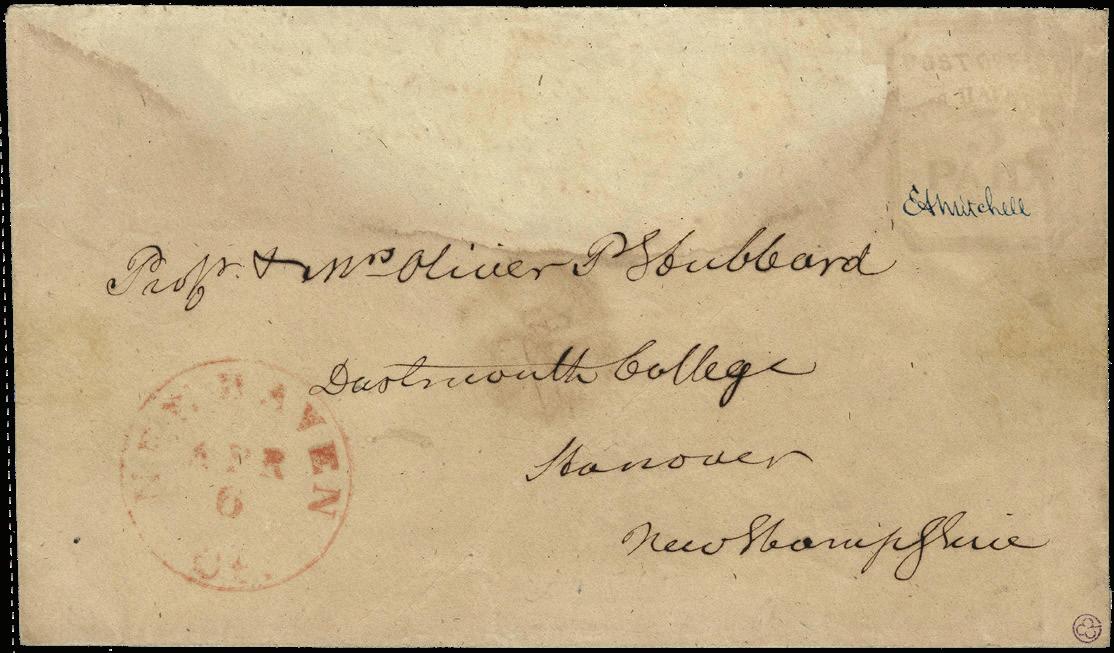 POST OFFICE
PAID
E A Mitchell
Prof. & Mrs Oliver P Hubbard
Dartmouth College
Hanover
New Hampshire
NEW HAVEN
APR
6
CT.